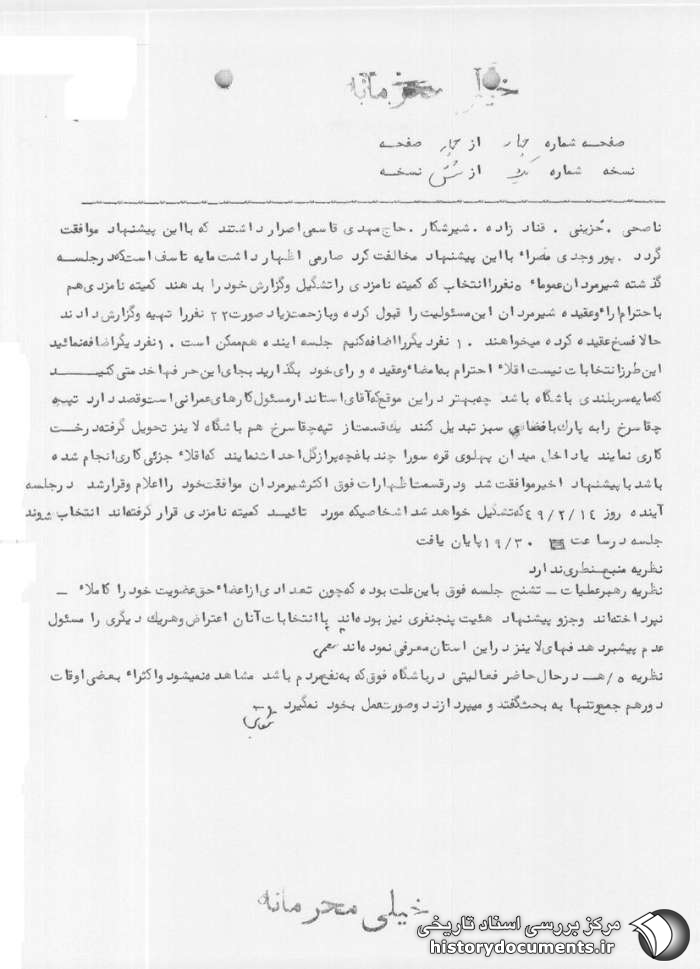 خیلی محرمانه
صفحه شماره چهار از چهار صفحه
نسخه شماره یک از شش نسخه
ناصحی . حزینی . قناد زاده . شیرشکار . حاج مهدی قاسمی اصرار داشتند که با این پیشنهاد موافقت
گردد . پور وجدی مصراً با این پیشنهاد مخالفت کرد صارمی اظهار داشت مایه تاسف است که در جلسه
گذشته شیرمردان عموماً ۵ نفر را انتخاب که کمیته نامزدی را تشگیل و گزارش خود را بدهند کمیته نامزدی هم
با احترام آراء و عقیده شیرمردان این مسئولیت را قبول کرده و با زحمت زیاد صورت ۲۲ نفر را تهیه و گزارش دادند
حالا فسخ عقیده کرده میخواهند ۱۰ نفر دیگر را اضافه کنیم جلسه اینده هم ممکن است ۱۰ نفر دیگر اضافه نمائید
این طرز انتخابات نیست اقلاً احترام به امضاء و عقیده و رای خود بگذارید بجای این حرفها خدمتی کنیــد
که مایه سربلندی باشگاه باشد چه بهتر در این موقع که آقای استاندار مسئول کارهای عمرانی است و قصد دارد تپه
چقاسرخ را به پارک با فضای سبز تبدیل کنند یک قسمت از تپه چقاسرخ هم باشگاه لاینز تحویل گرفته درخت
کاری نمایند یا داخل میدان پهلوی قره سورا چند باغچه پر از گل احداث نمایند که اقلاً جزئی کاری انجام شده
باشد با پیشنهاد اخیر موافقت شد و در قسمت اظهارات فوق اکثر شیرمردان موافقت خود را اعلام و قرار شد در جلسه
آینده روز ۴۹/۲/۱۴ که تشگیل خواهد شد اشخاصیکه مورد تائید کمیته نامزدی قرار گرفته اند انتخاب شوند
جلسه در ساعت ۱۹/۳۰ پایان یافت
نظریه منبع ـ نظری ندارد
نظریه رهبر عملیات ـ تشنج جلسه فوق باین علت بوده که چون تعدادی از اعضاء حق عضویت خود را کاملاً ـ
نپرداخته اند و جزو پیشنهاد هئیت پنجنفری نیز بوده اند با انتخابات آنان اعتراض و هریک دیگری را مسئول
عدم پیشبرد هدفهای لاینز در این استان معرفی نموده اند
نظریه ۵/هـ ـ در حال حاضر فعالیتی در باشگاه فوق که به نفع مردم باشد مشاهده نمیشود و اکثراً بعضی اوقات
دور هم جمع و تنها به بحث گفتند و میپردازند و صورت عمل بخود نمگیرد
خیلی محرمانه
مرکز بررسی اسناد تاریخی
historydocuments.ir